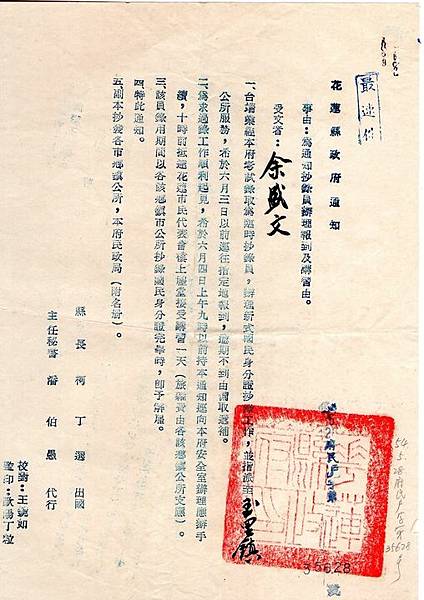 最速件
花蓮縣政府通知
事由：為通知抄錄員辦理報到及講習由。
受文者：余盛文
一、台端業經本府考試錄取為臨時抄錄員，辦理新式國民身分證抄錄工作，並指派至玉里鎮
公所服務，希於六月三日以前逕往指定地報到，逾期不到由備取遞補。
二、為求過錄工作順利起見，希於六月四日上午九時以前持本通知逕向本府安全室辦理應辦手
續，十時前抵達花蓮市民代表會樓上廳堂接受講習一天（旅雜費由各該鄉鎮公所支應）。
三、該員錄用期間以各該鄉鎮市公所抄錄國民身分證完畢時，即予解雇。
四、特此通知。
五、副本抄發各市鄉鎮公所，本府民政局（附名冊）。
縣長 柯丁選 出國
主任秘書 潘伯愚 代行
校對：王巍如
監印：歐陽丁粒
35628
54.5.28府民戶字第35628号